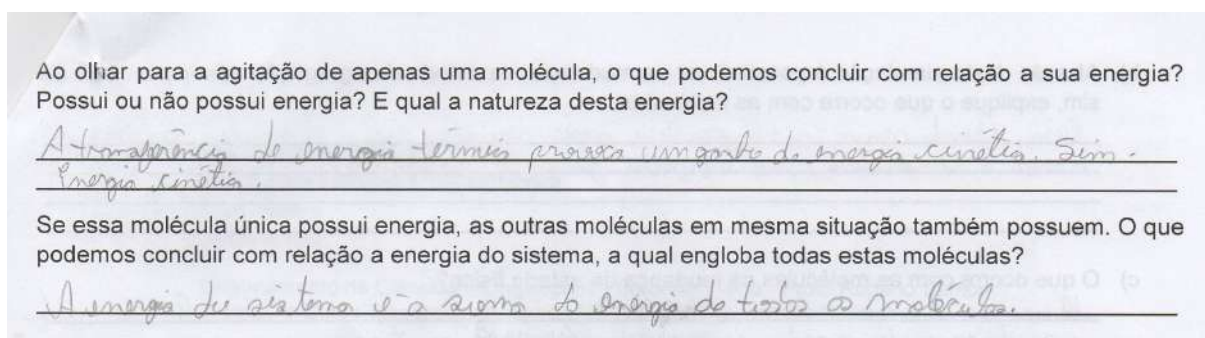 Ao olhar para a agitação de apenas uma molécula, o que podemos concluir com relação a sua energia?
Possui ou não possui energia? E qual a natureza desta energia?
A transferência de energia térmica provoca um ganho de energia cinética. Sim.
Energia cinética.
Se essa molécula única possui energia, as outras moléculas em mesma situação também possuem. O que
podemos concluir com relação a energia do sistema, a qual engloba todas estas moléculas?
A energia do sistema é a soma da energia de todas as moléculas.